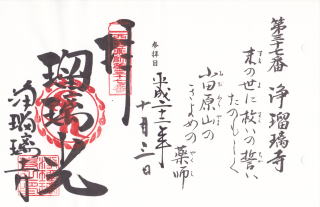 第三十七番 浄瑠璃寺
末の世に救いの誓い
たのもしく
小田原山の
きよめの
薬師
参拝日 平成二十二年
十月三日
拝
瑠璃光
浄瑠璃寺